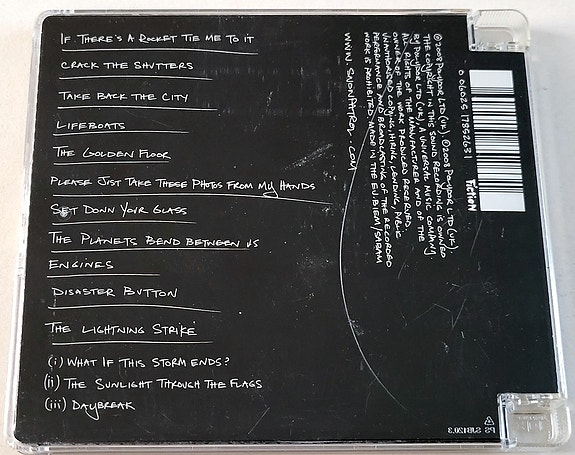 IF THERE'S A ROCKET TIE ME TO IT
CRACK THE SHUTTERS
TAKE BACK THE CITY
LIFEBOATS
THE GOLDEN FLOOR
PLEASE JUST TAKE THESE PHOTOS FROM MY HANDS
SET DOWN YOUR GLASS
THE PLANETS BEND BETWEEN US
ENGINES
DISASTER BUTTON
THE LIGHTNING STRIKE
(i) WHAT IF THIS STORM ENDS?
(ii) THE SUNLIGHT THROUGH THE FLAGS
(iii) DAYBREAK
℗2008 POLYDOR LTD (UK). ©2008 POLYDOR LTD (UK).
THE COPYRIGHT IN THIS SOUND RECORDING IS OWNED
BY POLYDOR LTD (UK), A UNIVERSAL MUSIC COMPANY
ALL RIGHTS OF THE MANUFACTURER AND OF THE
OWNER OF THE WORK PRODUCED RESERVED.
UNAUTHORISED COPYING, HIRING, LENDING, PUBLIC
PERFORMANCE AND BROADCASTING OF THE RECORDED
WORK IS PROHIBITED. MADE IN THE EU. BIEM/SABAM
WWW.SNOWPATROL.COM
0 06025 17852631
FICTION
PS SJB120.3